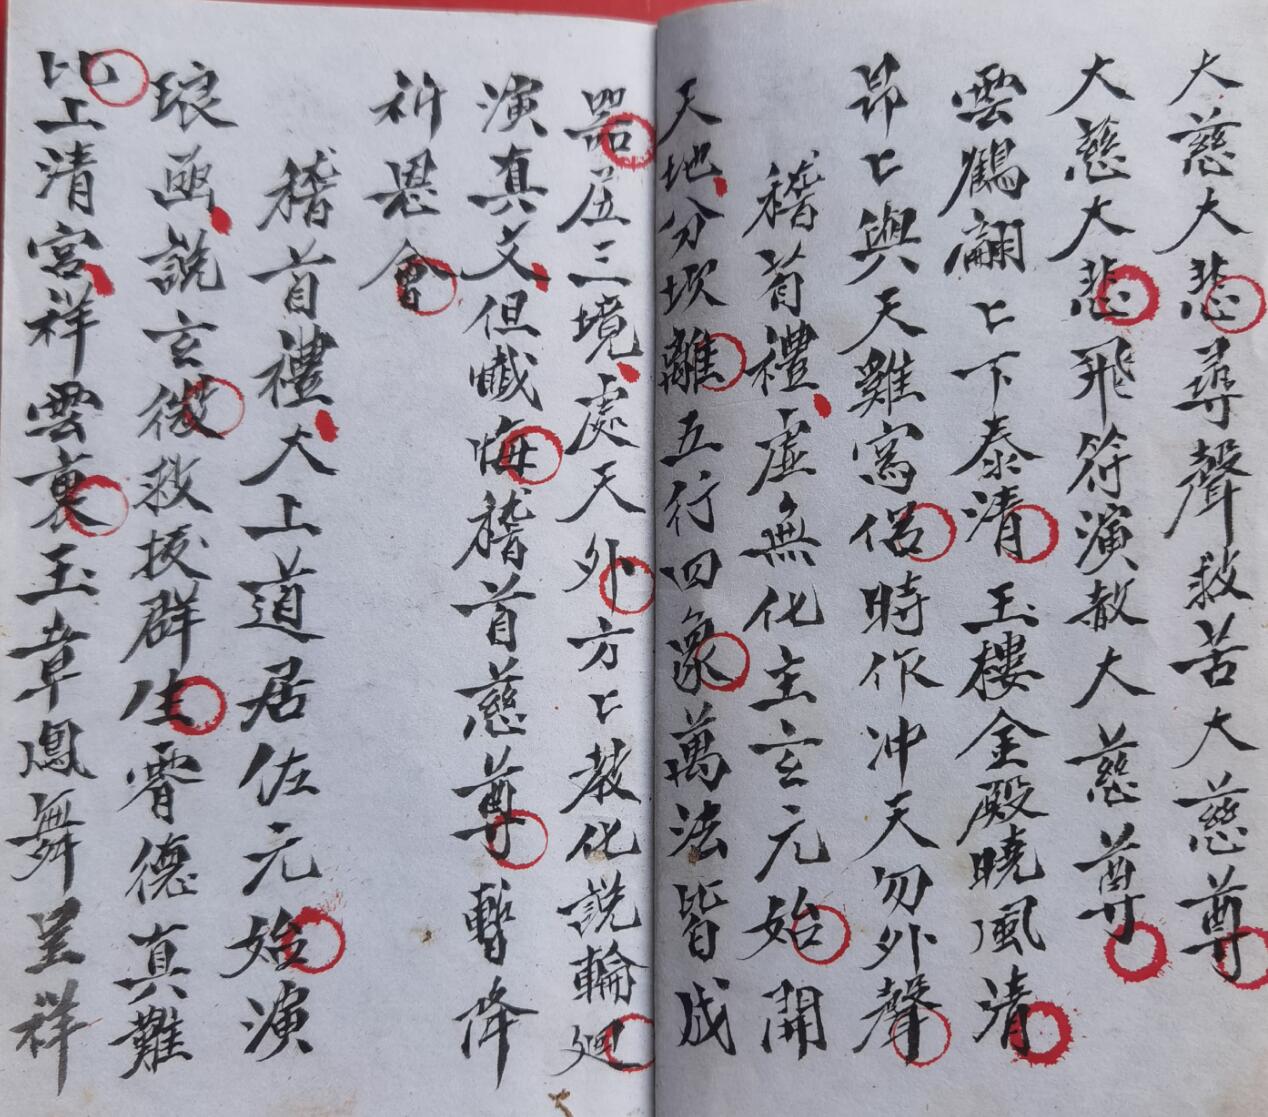 大慈大悲尋聲救苦大慈尊
大慈大悲飛符演教大慈尊
雲鶴翩〻下泰清玉樓金殿曉風清
昻〻與天雞窩侶時作冲天勿外聲
稽首禮虛無化主玄元始開
天地分坎離五行四象萬法皆成
器居三境處天外方〻教化說輪廻
演真文但懺悔稽首慈尊暫降
祈恩會
稽首禮大上道居佐元始演
琅函說玄微救拔群生霄德真難
比上清宮祥雲裏玉章鳳舞呈祥